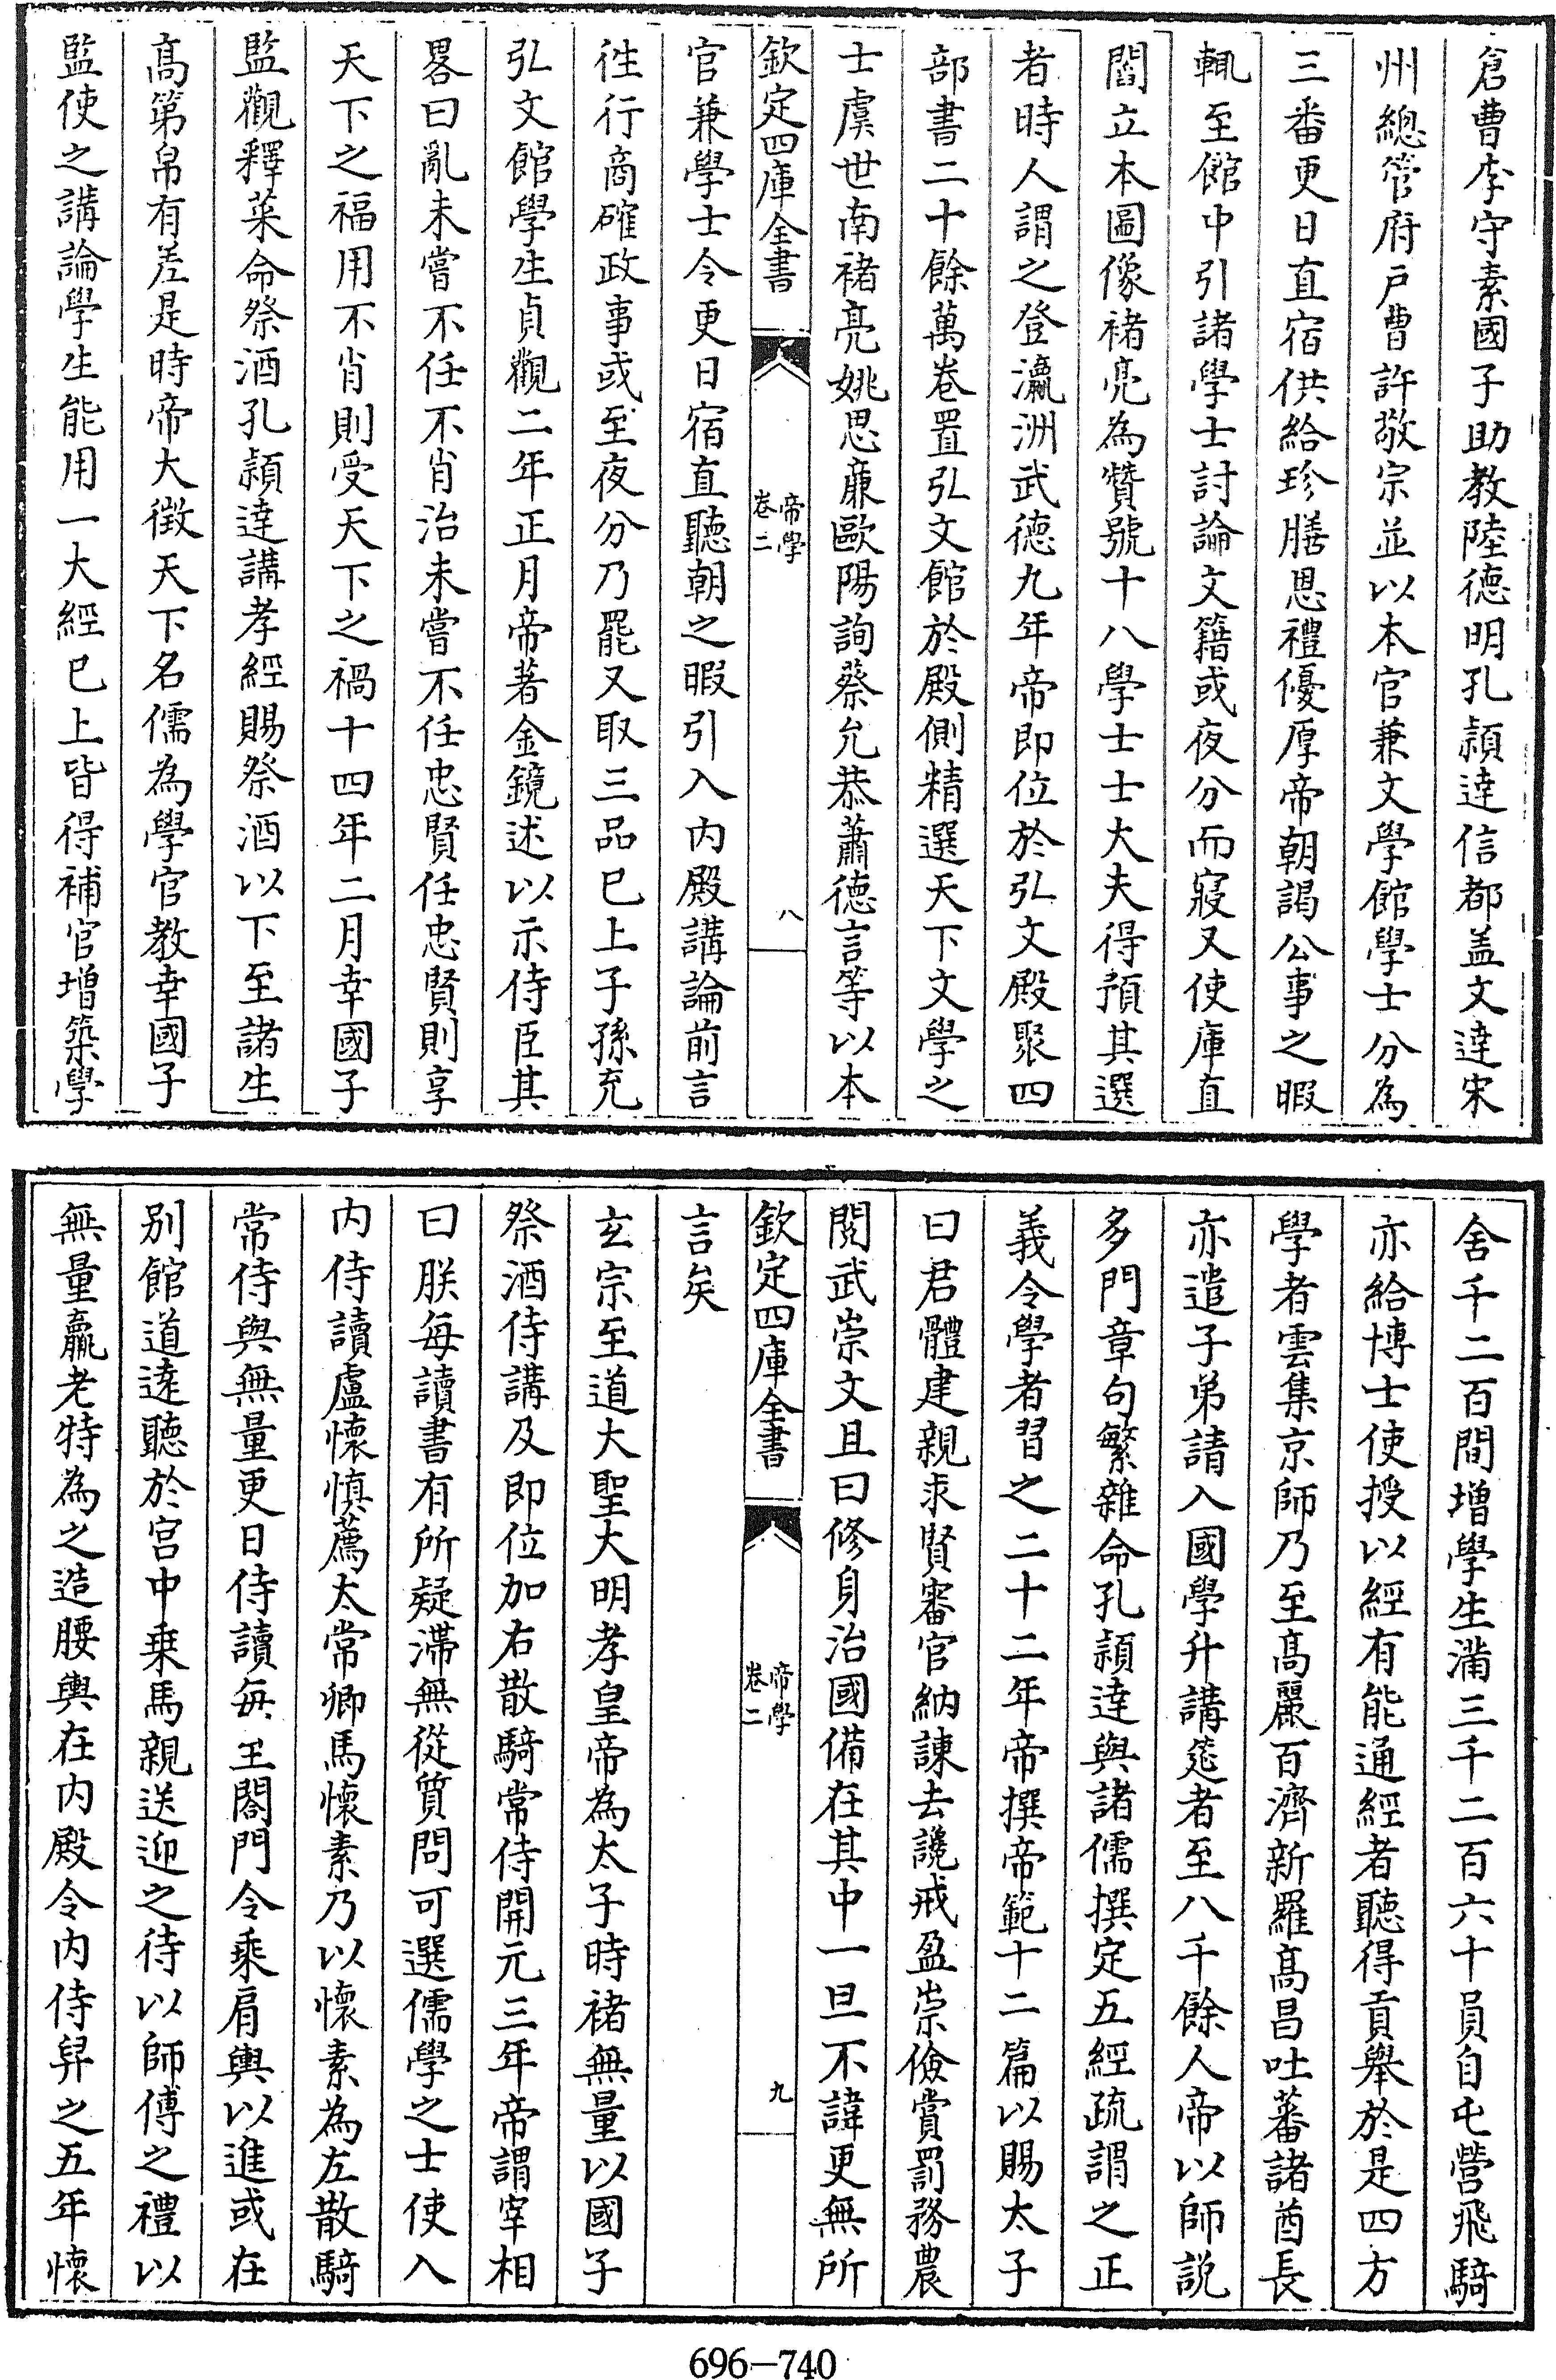 倉曹李守素國子助教陸德明孔頴達信都盖文達宋
州總管府戸曹許敬宗並以本官兼文學館學士分為
三番更日直宿供給珍膳恩禮優厚帝朝謁公事之暇
輒至館中引諸學士討論文籍或夜分而寢又使庫直
閻立本圖像褚亮為贊號十八學士士大夫得預其選
者時人謂之登瀛洲武德九年帝即位於弘文殿聚四
部書二十餘萬卷置弘文館於殿側精選天下文學之
士虞世南褚亮姚思廉歐陽詢蔡允恭蕭德言等以本
欽定四庫全書
帝學
卷二
八
官兼學士令更日宿直聽朝之暇引入内殿講論前言
徃行商確政事或至夜分乃罷又取三品已上子孫充
弘文館學生貞觀二年正月帝著金鏡述以示侍臣其
畧曰亂未嘗不任不肖治未嘗不任忠賢任忠賢則享
天下之福用不肖則受天下之禍十四年二月幸國子
監觀釋菜命祭酒孔頴達講孝經賜祭酒以下至諸生
髙第帛有差是時帝大徴天下名儒為學官教幸國子
監使之講論學生能用一大經已上皆得補官增築學
舍千二百間增學生滿三千二百六十員自屯營飛騎
亦給博士使授以經有能通經者聽得貢舉於是四方
學者雲集京師乃至髙麗百濟新羅髙昌吐蕃諸酋長
亦遣子弟請入國學升講筵者至八千餘人帝以師說
多門章句繁雜命孔頴達與諸儒撰定五經疏謂之正
義令學者習之二十二年帝撰帝範十二篇以賜太子
曰君體建親求賢審官納諫去讒戒盈崇儉賞罰務農
閱武崇文且曰修身治國備在其中一旦不諱更無所
欽定四庫全書
帝學
卷二
九
言矣
玄宗至道大聖大明孝皇帝為太子時褚無量以國子
祭酒侍講及即位加右散騎常侍開元三年帝謂宰相
曰朕每讀書有所疑滯無從質問可選儒學之士使入
内侍讀盧懷慎薦太常卿馬懷素乃以懷素為左散騎
常侍與無量更日侍讀每至閤門令乘肩輿以進或在
别館道逺聽於宫中乗馬親送迎之待以師傅之禮以
無量羸老特為之造腰輿在内殿令内侍舁之五年懷
696-740